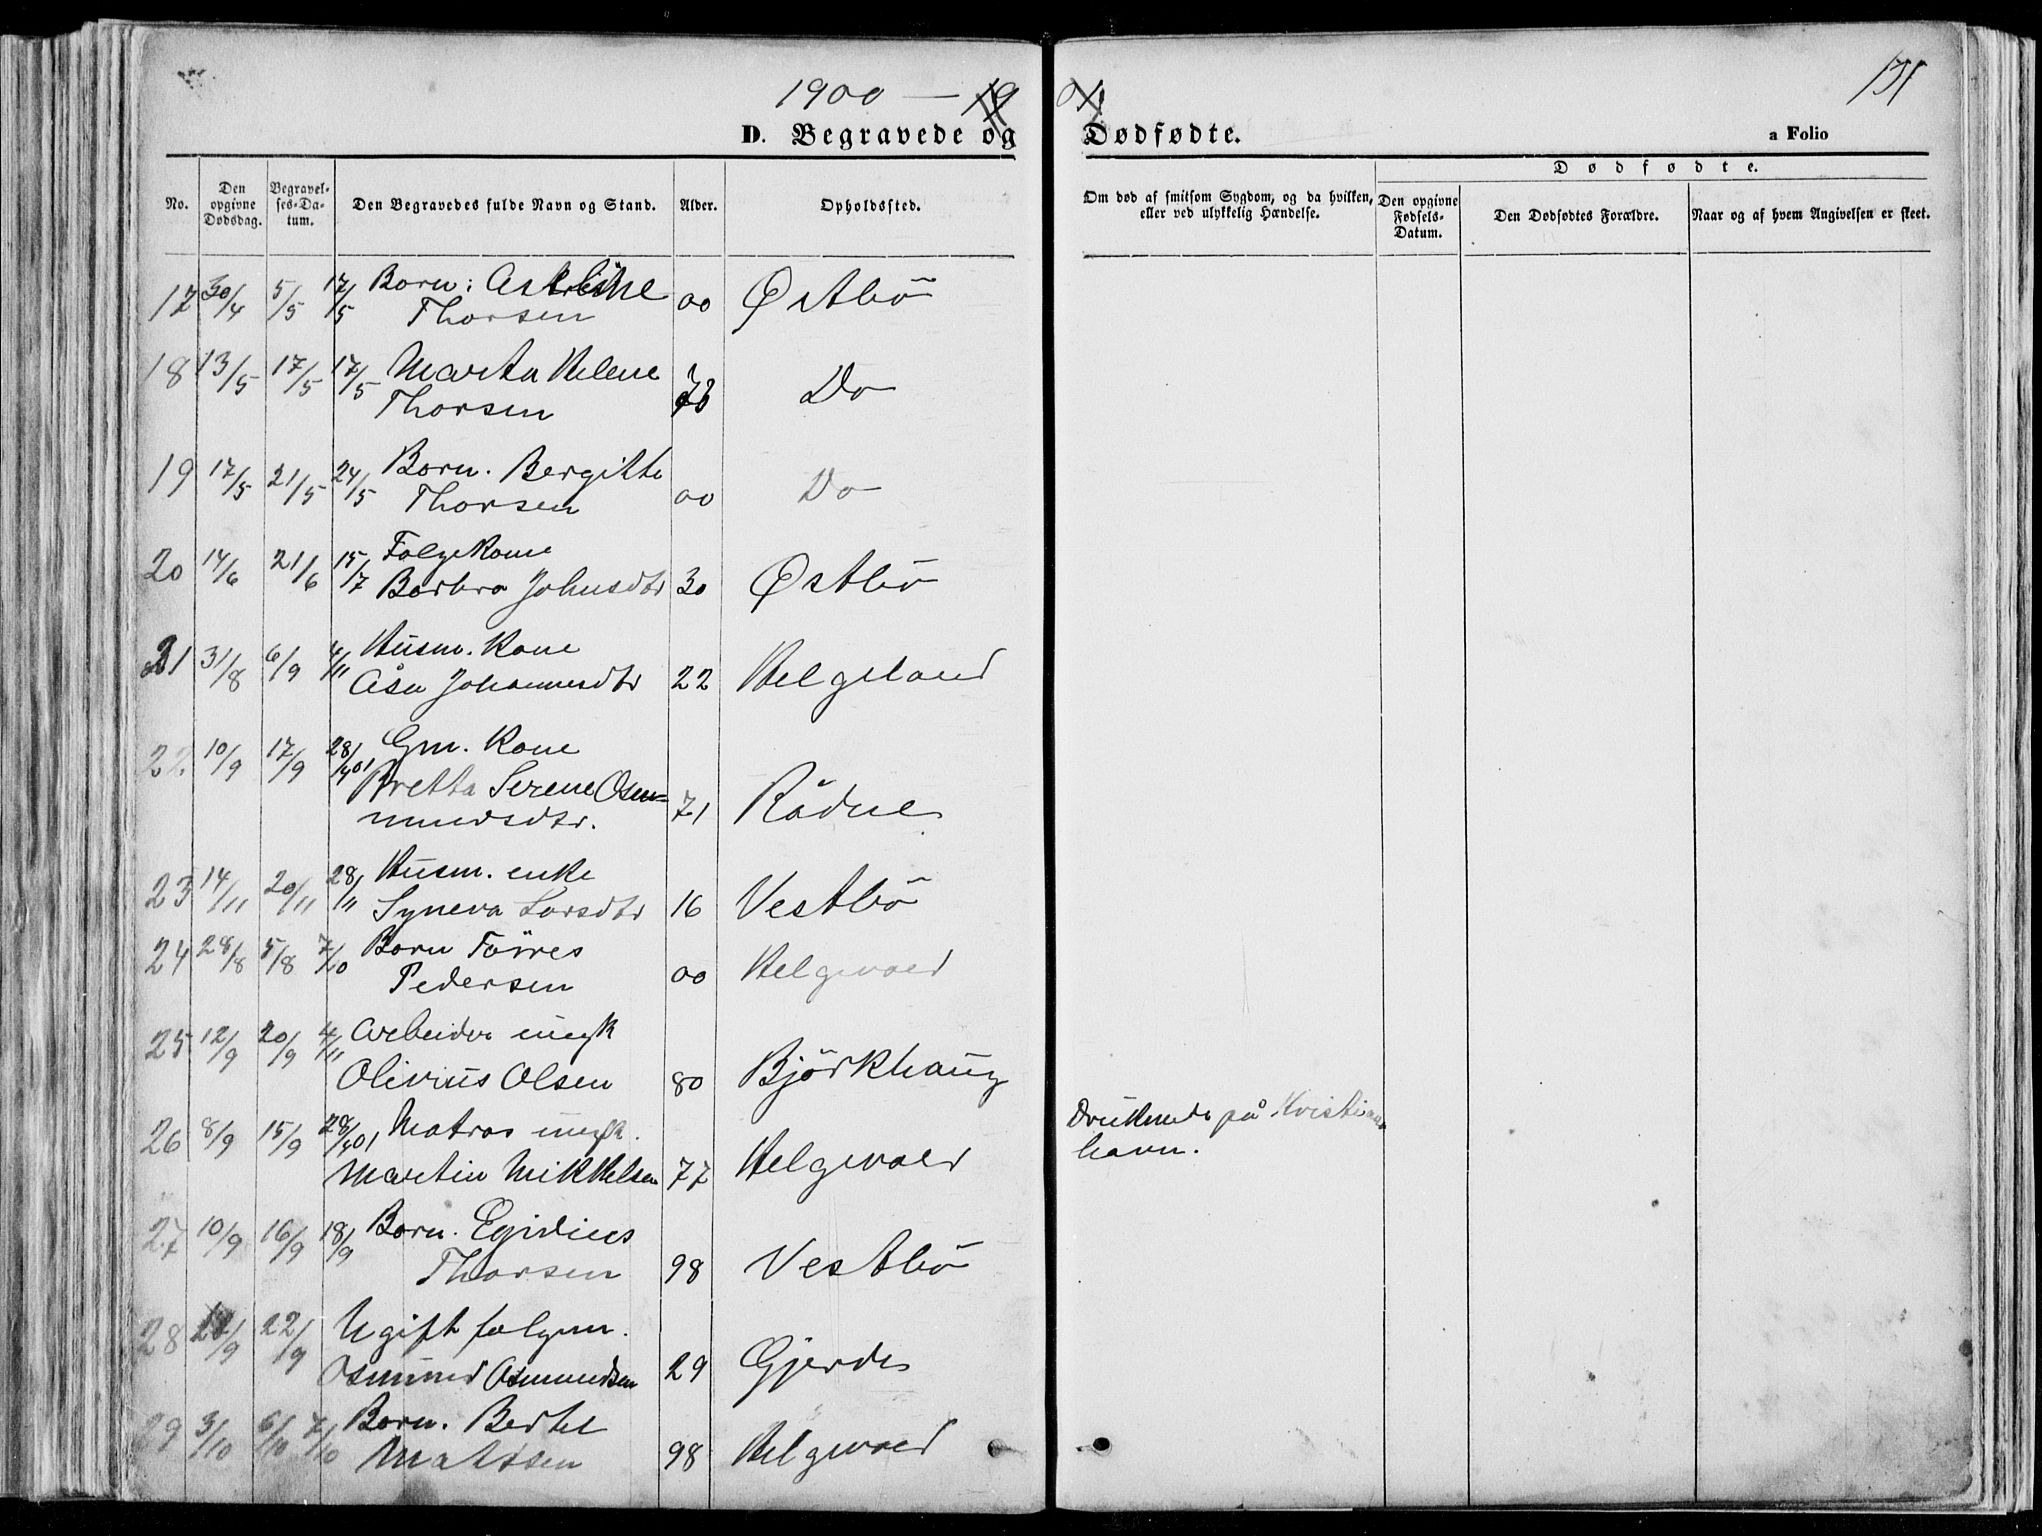 1900 — 19
131
D. Begravede og Dødfødte.
a Folio
No.
Den opgivne Dødsdag.
Begravelses-Datum.
Den Begravedes fulde Navn og Stand.
Alder.
Opholdssted.
Om død af smitsom Sygdom, og da hvilken, eller ved ulykkelig Hændelse.
Dødfødte.
Den opgivne Fødsels-Datum.
Den Dødfødtes Forældre.
Naar og af hvem Angivelsen er skeet.
17 30/4 5/5 17/5 Barn:
Thorsen 00 Østbö
18 13/5 17/5 17/5 Marta Helene
Thorsen Do
19 17/5 21/5 24/5 Barn. Bergitte
Thorsen 00 Do
20 14/6 21/6 15/7 Følgekone
Barbra Johnsdtr 30 Østbö
21 31/8 6/9 4/11 Husm. Kone
Åsa Johannesdtr 22 Helgeland
22. 10/9 17/9 28/4 01 Gm. Kone
Bretta Serene Osm-
mundsdtr. 71 Rådne
23 14/11 20/11 28/11 Husm. enke
Syneva Larsdtr 16 Vestbö
24 28/8 5/8 7/10 Barn Törres
Pedersen 00 Helgevold
25 12/9 20/9 4/11 Arbeider ungk
Olivius Olsen 80 Björkhaug
26 8/9 15/9 28/4 01 Matros ungk.
Martin Mikkelsen 77 Helgevold
Druknede på Kristians
havn.
27 10/9 16/9 18/9 Barn. Egidius
Thorsen 98 Vestbö
28 22/9 Ugift følgm.
Osmund Osmundsen 29 Gjerde
29 3/10 6/10 7/10 Barn. Bertel
Matssen 98 Helgevold